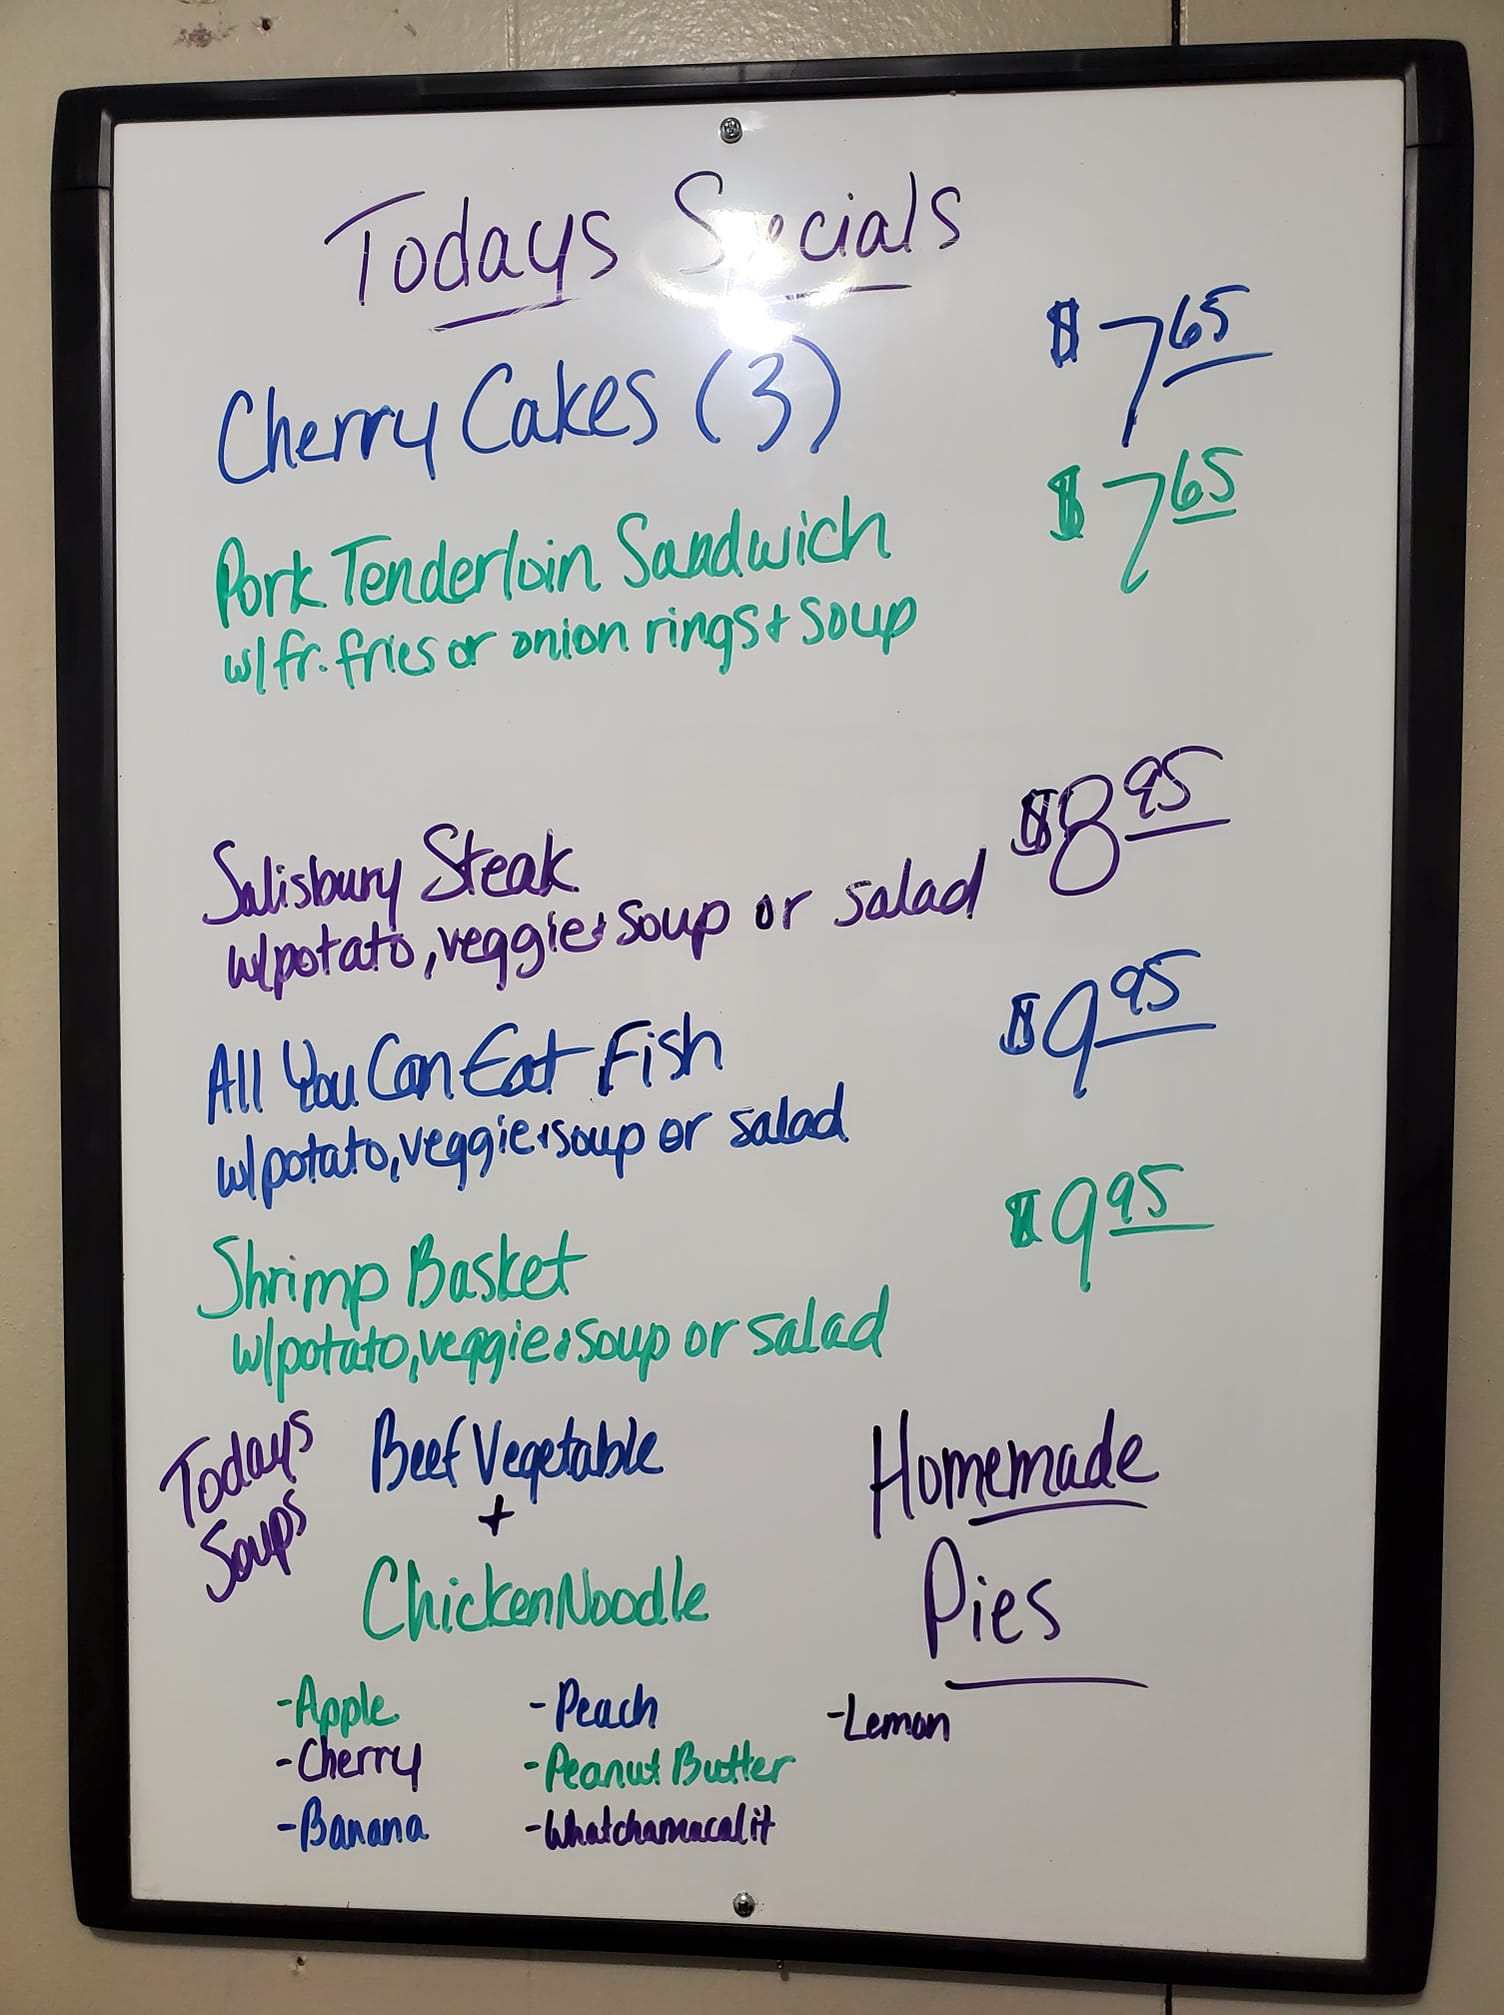 Todays Specials
Cherry Cakes (3) $7.65
Pork Tenderloin Sandwich $7.65
w/fr. fries or onion rings + soup
Salisbury Steak $8.95
w/potato, veggie + soup or salad
All You Can Eat Fish $9.95
w/potato, veggie + soup or salad
Shrimp Basket $9.95
w/potato, veggie + soup or salad
Todays
Soups
Beef Vegetable
+
Chicken Noodle
Homemade
Pies
-Apple
-Cherry
-Banana
-Peach
-Peanut Butter
-Whatchamacalit
-Lemon